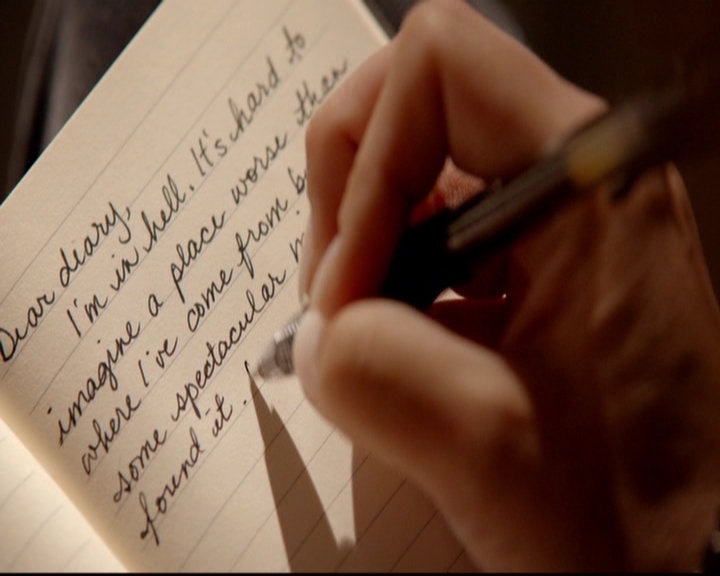 Dear diary,
I'm in hell. It's hard to
imagine a place worse than
where I've come from
some spectacular
found it.